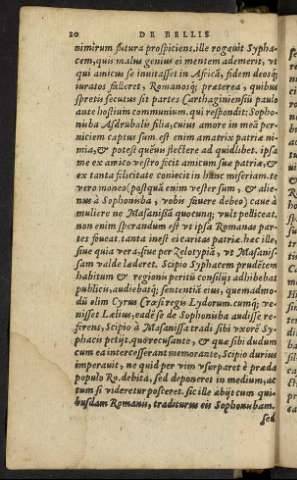 20 DE BELLIS
nimirum futura prospiciens. ille rogauit Sypha
cem, quis malus genius ei mentem ademerit, vt
qui amicus se inuitasset in Africā, fidem deosq́;
iuratos falleret, Romanosq́; præterea, quibus
spretis secutus sit partes Carthaginiensiū paulo
ante hostium communium. qui respondit: Sopho-
nuba Asdrubalis filia, cuius amore in meā per-
niciem captus sum. est enim amatrix patriæ ni-
mia, & potest quēuis flectere ad quidlibet. ipsa
me ex amico vestro fecit amicum suæ patriæ, &
ex tanta felicitate coniecit in hāc miseriam. te
vero moneo (postquā enim vester sum, & alie-
nus à Sophonuba, vobis fauere debeo) caue à
muliere ne Masanissā quocunq; vult pelliceat.
non enim sperandum est vt ipsa Romanas par-
tes foueat. tanta inest ei caritas patriæ. hæc ille,
siue quia vera, siue per Zelotypiā, vt Masanis-
sam valde læderet. Scipio Syphacem prudētem
habitum & regionis peritū consilijs adhibebat
publicis, audiebatq́; sententiā eius, quemadmo-
dū olim Cyrus Crœsi regis Lydorum. cumq́; ve-
nisset Lælius, eadē se de Sophonuba audisse re-
ferens, Scipio à Masanissa tradi sibi vxorē Sy-
phacis petijt. quo recusante, & quæ sibi dudum
cum ea intercesserant memorante, Scipio durius
imperauit, ne quid per vim vsurparet è præda
populo Ro. debita, sed deponeret in medium, ac
tum si videretur posceret. sic ille abijt cum qui-
busdam Romanis, traditurus eis Sophonubam.
sed